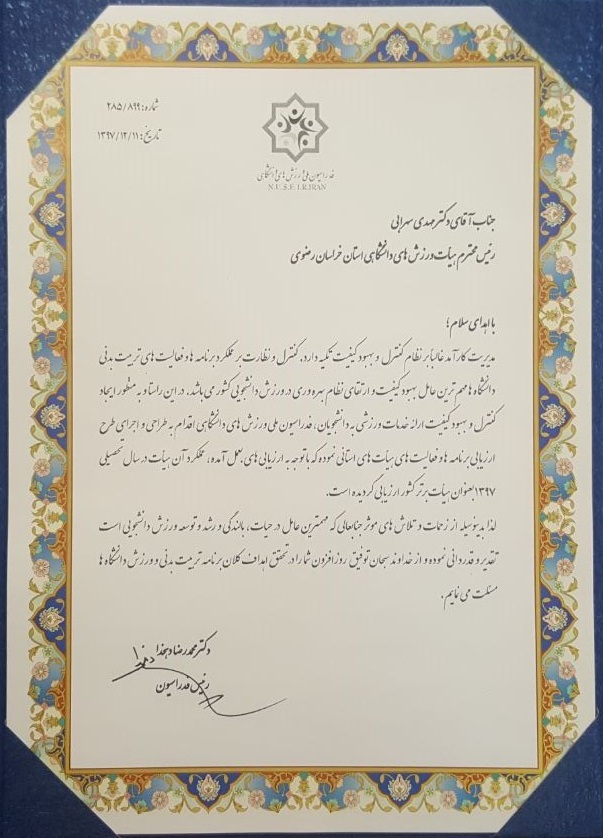 شماره: ۲۸۵/۸۹۹
تاریخ: ۱۳۹۷/۱۲/۱۱
فدراسیون ملی ورزش های دانشگاهی
N.U.S.F I.R.IRAN
جناب آقای دکتر مهدی سهرابی
رئیس محترم هیأت ورزش های دانشگاهی استان خراسان رضوی
با اهدای سلام؛
مدیریت کارآمد غالباً بر نظام کنترل و بهبود کیفیت تکیه دارد. کنترل و نظارت بر عملکرد برنامه ها و فعالیت های تربیت بدنی
دانشگاه ها مهم ترین عامل بهبود کیفیت و ارتقای نظام بهره وری در ورزش دانشجویی کشور می باشد. در این راستا و به منظور ایجاد
کنترل و بهبود کیفیت ارائه خدمات ورزشی به دانشجویان، فدراسیون ملی ورزش های دانشگاهی اقدام به طراحی و اجرای طرح
ارزیابی برنامه ها و فعالیت های هیأت های استانی نموده که با توجه به ارزیابی های بعمل آمده، عملکرد آن هیأت در سال تحصیلی
۱۳۹۷ بعنوان هیأت برتر کشور ارزیابی گردیده است.
لذا بدینوسیله از زحمات و تلاش های موثر جنابعالی که مهمترین عامل در حیات، بالندگی و رشد و توسعه ورزش دانشجویی است
تقدیر و قدردانی نموده و از خداوند سبحان توفیق روزافزون شما را در تحقق اهداف کلان برنامه تربیت بدنی و ورزش دانشگاه ها
مسئلت می نمایم.
دکتر محمدرضا دهخدا
رئیس فدراسیون